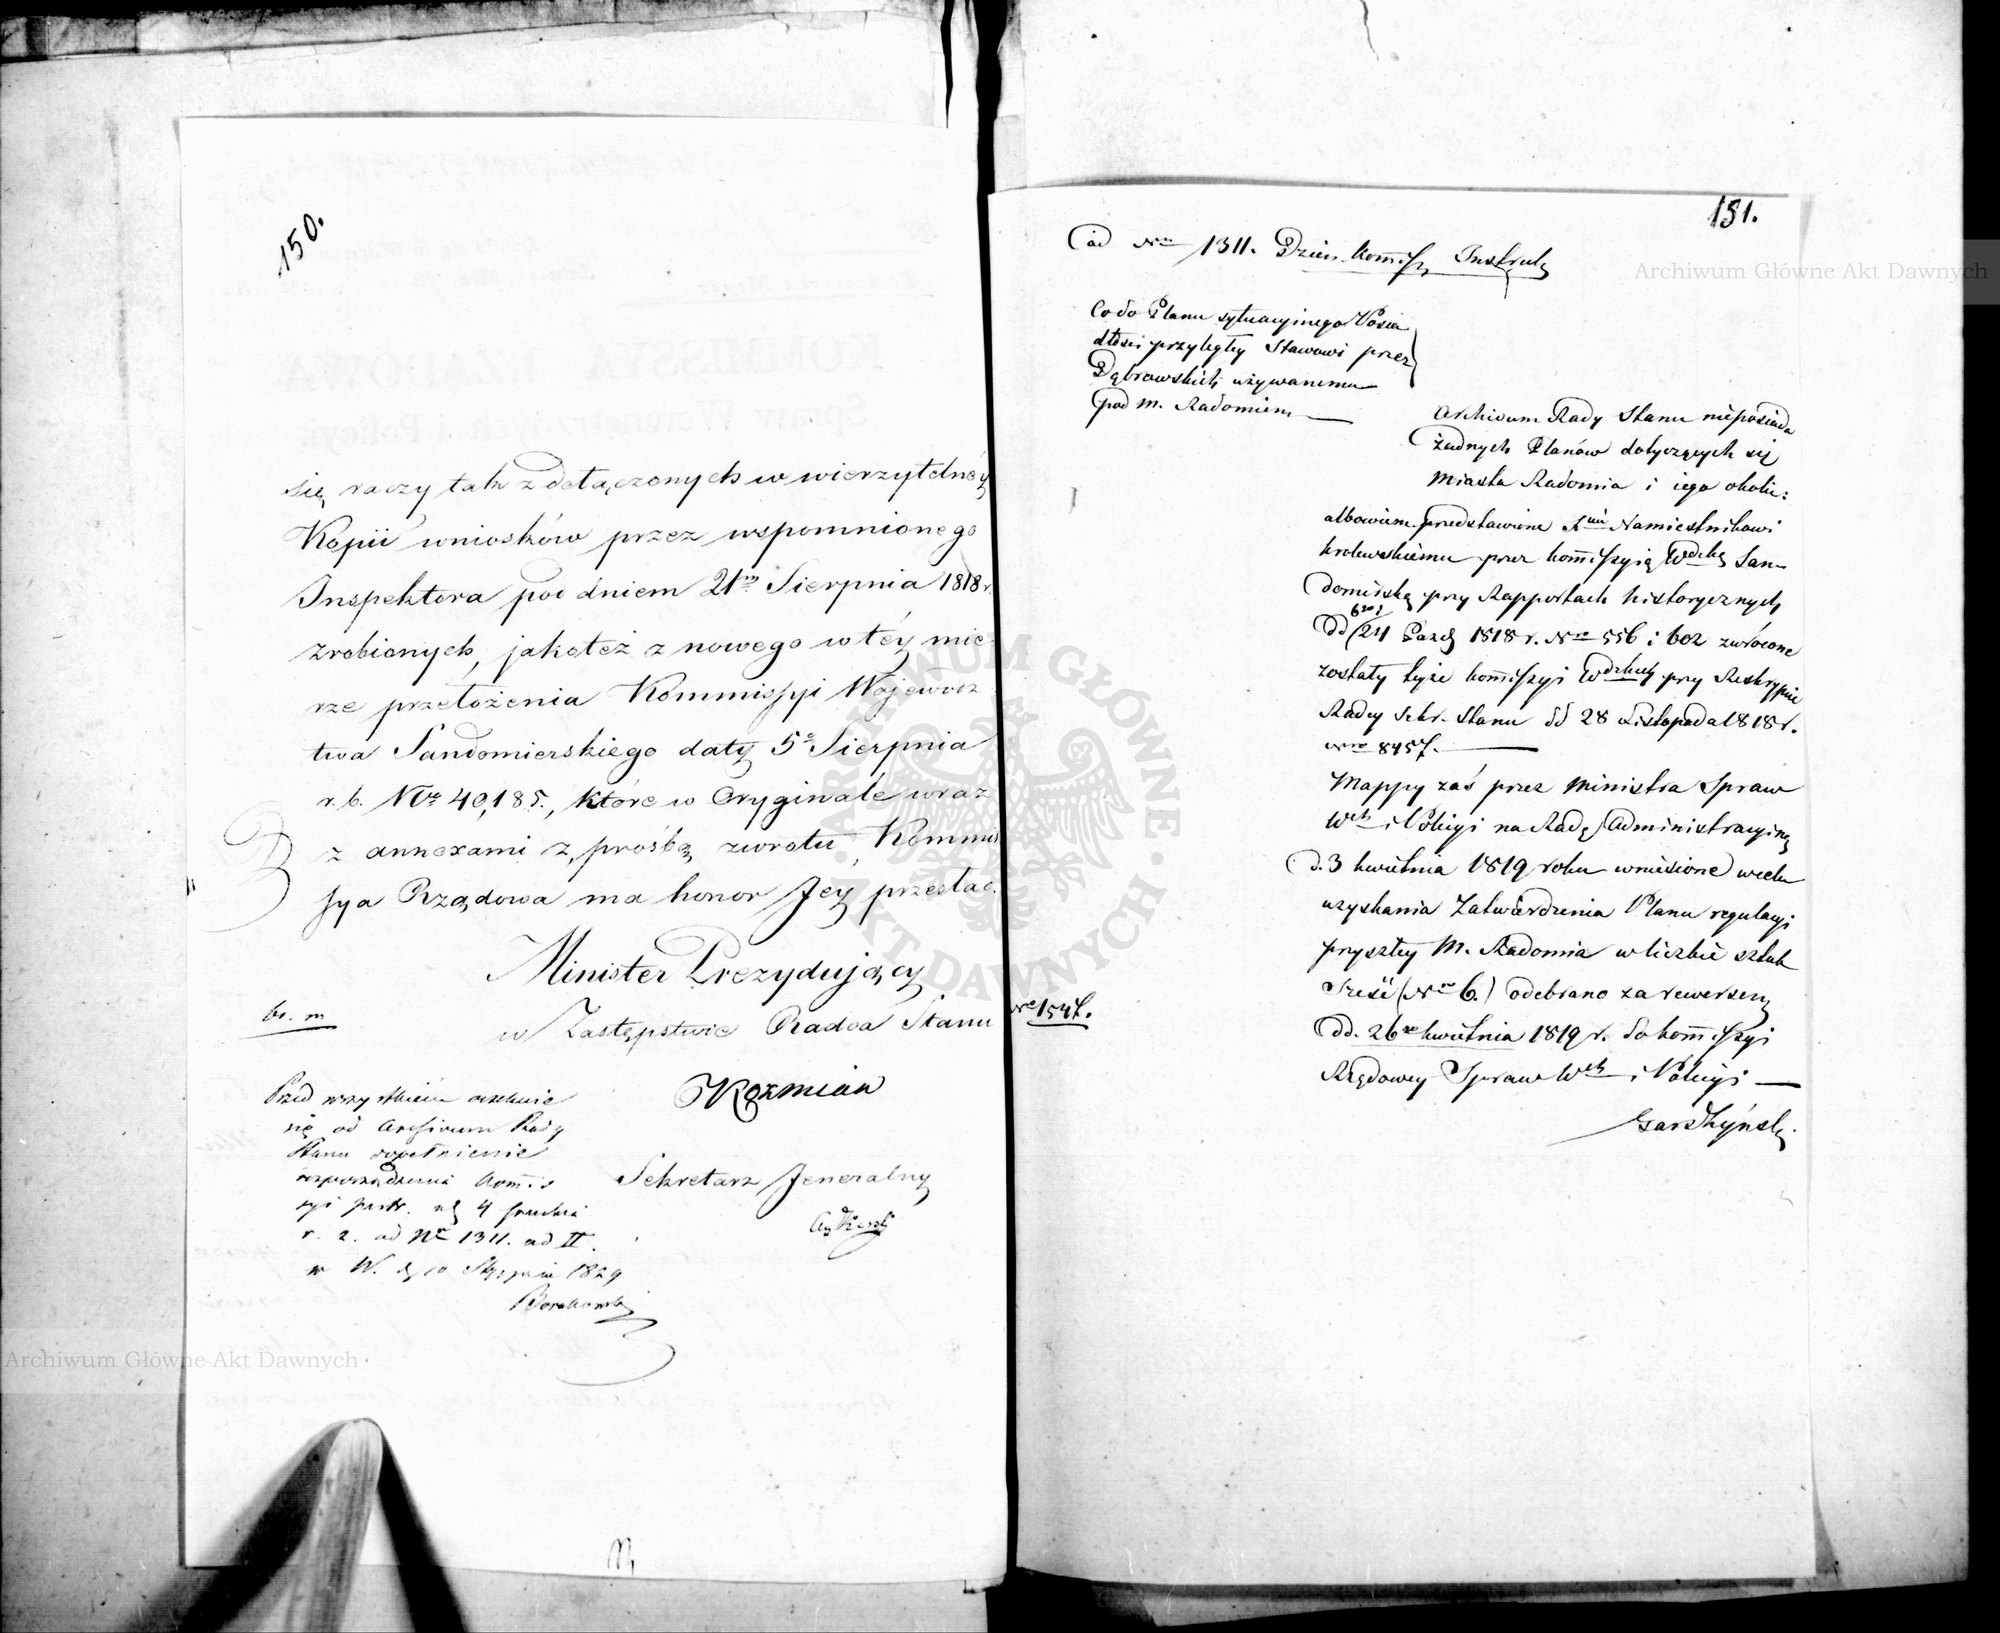 150.
się raczy tak z dołączonych w wierzytelnéy
Kopii wniosków przez wspomnionego
Inspektora pod dniem 21m Sierpnia 1818 r.
zrobionych, jakoteż z nowego w téy mie-
rze przełożenia Kommissyi Wojewódz-
twa Sandomierskiego daty 5o Sierpnia
r. b. Nro 40,185., które w Oryginale wraz
z annexami z prośbą zwrotu, Kommis
sya Rządowa ma honor Jey przesłać.
Minister Prezydujący
w Zastępstwie Radca Stanu
Koźmian
Sekretarz Jeneralny
br. m
Przed wszystkiém oczekuie
się od Archivum Rady
Stanu dopełnienie
rozporządzenia Kommis
syi Instr. 4 Grudnia
r. z. ad Nro 1311. ad II.
w W. d. 10 Stycznia 1829
151.
ad Nro 1311. Dzien. Kommiss. Instruk.
Co do Planu sytuacyinego Posia
dłości przyległey Stawowi przez
Dąbrowskich używanemu
pod m. Radomiem
Archivum Rady Stanu nieposiada
żadnych Planów dotyczących się
Miasta Radomia i iego okolic:
albowiem przedstawione Xciu Namiestnikowi
krolewskiému przez kommissyią Wdzką San-
domirską przy Rapportach historycznych
dd 24 Pazd 1818 r. Nro 556 i 602 zwrócone
zostały teyże kommissyi Wdzkiey przy Reskrypcie
Radcy Sekr. Stanu dd 28 Listopada 1818 r.
Nro 8457.
Mappy zaś przez Ministra Spraw
Wch i Policyi na Radę Administracyiną
d. 3 kwietnia 1819 roku wniesione w celu
uzyskania Zatwierdzenia Planu regulacyi
przyszłey M. Radomia w liczbie sztuk
Sześć (Nro 6.) odebrano za rewersem
dd. 26go kwietnia 1819 r. do kommissyi
Rządowey Spraw Wch i Policyi
Nro 1547.
Archiwum Główne Akt Dawnych
Archiwum Główne Akt Dawnych
ARCHIWUM GŁÓWNE AKT DAWNYCH